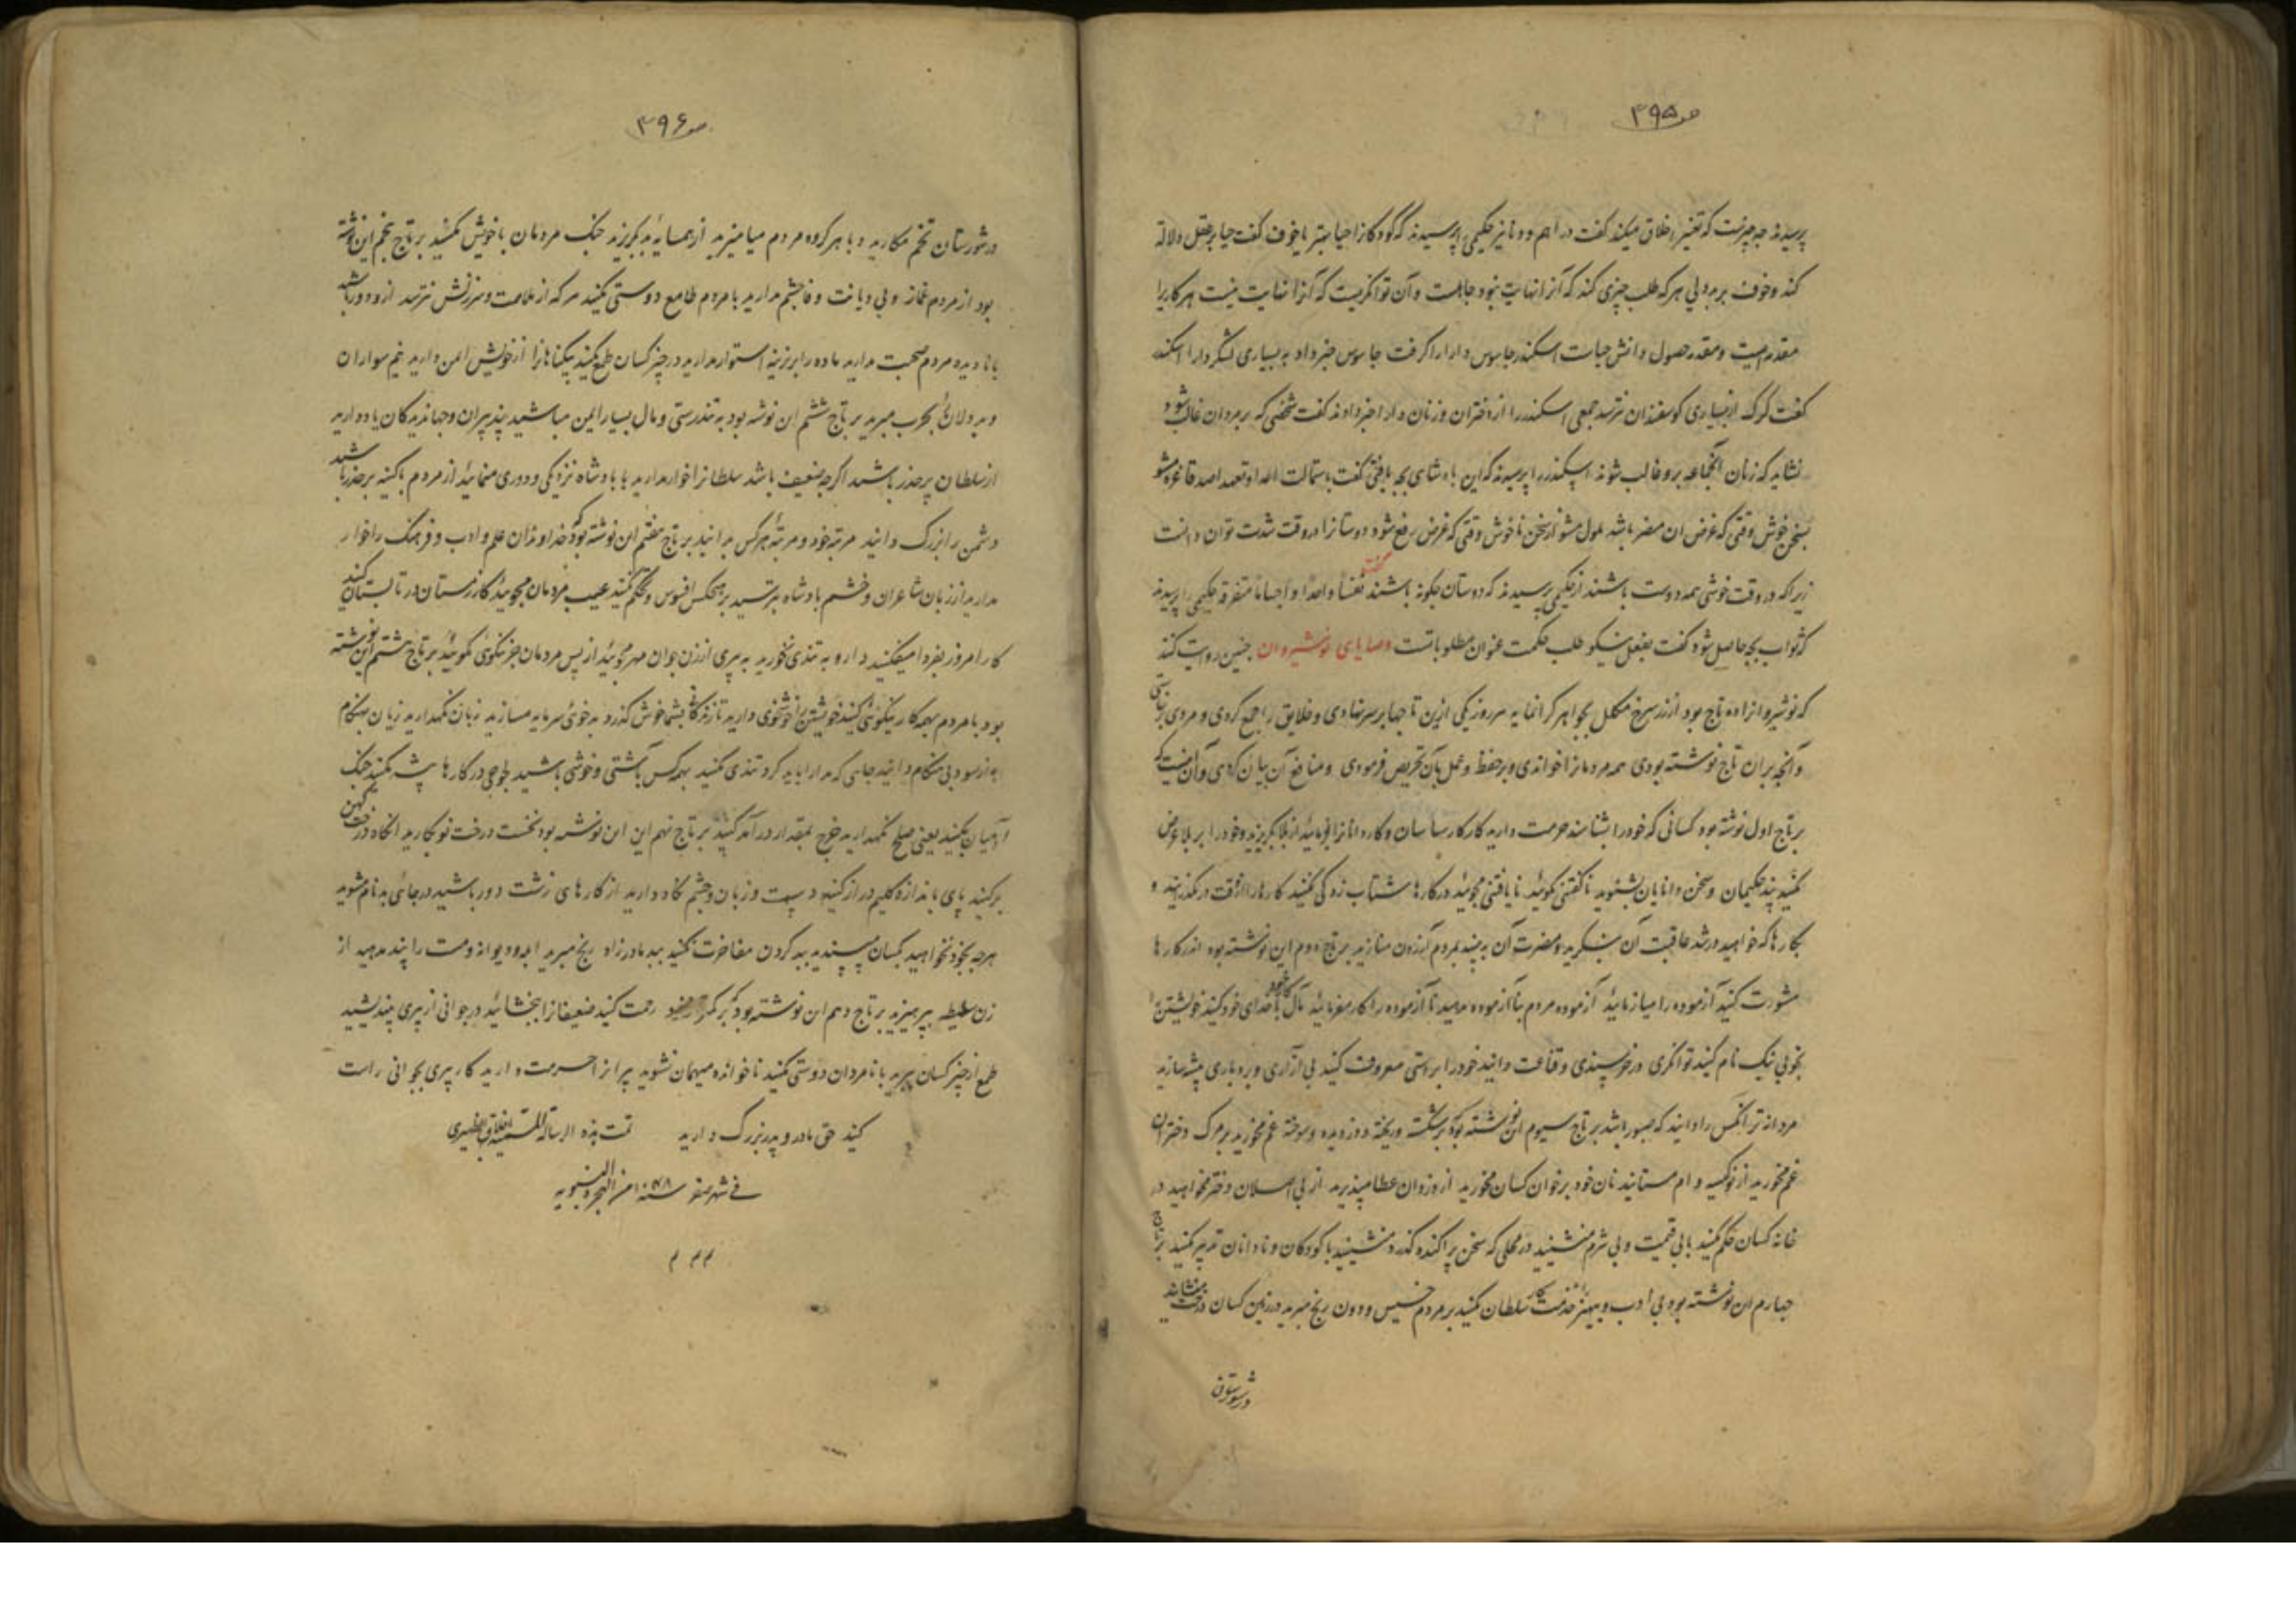 ص ۳۹۵
پرسیدند چه چیزست که تغییر اخلاق میکند گفت دراهم و دنانیر حکیمی را پرسیدند که کودکانرا حیا بهتر یا خوف گفت حیا بر عقل دلالة
کند و خوف بر بددلی هر که طلب چیزی کند که آنرا نهایت نبود جاهلست و آن توانگریست که آنرا نهایت نیست هر کاریرا
مقدمه ایست و مقدمه حصول دانش حیات اسکندر جاسوس دارا را گرفت جاسوس خبر داد به بسیاری لشگر دارا اسکندر
گفت گرگ از بسیاری گوسفندان نترسد جمعی اسکندر را از دختران و زنان دارا خبر دادند گفت شخصی که بر مردان غالب شود
نشاید که زنان آنجماعه برو غالب شوند اسکندر را پرسیدند که این بادشاهی بچه یافتی گفت باستمالت اعدا و تعهد اصدقا غره مشو
بسخن خوش وقتی که غرض ان مضر باشد ملول مشو از سخن ناخوش وقتی که غرض نفع شود دوستانرا در وقت شدت توان دانست
زیرا که در وقت خوشی همه دوست باشند از حکیمی پرسیدند که دوستان چگونه باشند گفت نفسا واحدا و اجسادا متفرقه حکیمی را پرسیدند
که ثواب بچه حاصل شود گفت بفعل نیکو طلب حکمت عنوان مطلوباتست وصایای نوشیروان چنین روایت کنند
که نوشیروانرا ده تاج بود از زر سرخ مکلل بجواهر گرانمایه هر روز یکی ازین تاجها بر سر نهادی و خلایق را جمع کردی و مردی برخاستی
و آنچه بران تاج نوشته بودی همه مردمانرا خواندی و بر حفظ و عمل بآن تحریص فرمودی و منافع آن بیان کردی و آن اینست که
بر تاج اول نوشته بود کسانی که خود را بشناسند حرمت دارید کار کارشناسان و کاردانانرا فرمائید از بلا بگریزید و خود را بر بلا عرض
مکنید پند حکیمان و سخن دانایان بشنوید ناگفتنی مگوئید نایافتنی مجوئید در کارها شتاب زدگی مکنید کارها را از وقت در مگذرانید و
بکارها که خواهید در شد عاقبت آن بنگرید و مضرت آن به بینید بمردم آزردن منازید بر تاج دوم این نوشته بود اندر کارها
مشورت کنید آزموده را میازمائید آزموده مردم بناآزموده مدهید ناآزموده را کار مفرمائید مال را فدای خود کنید خویشتن
بخوبی نیک نام کنید توانگری در خرسندی و قناعت دانید خود را براستی معروف کنید بی آزاری و بردباری پیشه سازید
مردانه تر آنکس را دانید که صبور باشد بر تاج سیوم این نوشته بود که بر شکسته و ریخته و دزدیده و سوخته غم مخورید بر مرگ دختران
غم مخورید از نوکیسه وام مستانید نان خود بر خوان کسان مخورید از دزدان عطا مپذیرید از بی اصلان دختر مخواهید در
خانه کسان حکم مکنید با بی قیمت و بی شرم منشینید در محلی که سخن پراکنده گذرد منشینید با کودکان و نادانان تدبیر مکنید بر تاج
چهارم این نوشته بود بی ادب و بیهنر خدمت سلطان مکنید بر مردم خسیس و دون رنج مبرید در زمین کسان درخت منشانید
در شورستان
ص ۳۹۶
در شورستان تخم مکارید و با هر گروه مردم میامیزید از همسایه بد بگریزید جنگ مردمان با خویش مکنید بر تاج پنجم این نوشته
بود از مردم غماز و بی دیانت وفا چشم مدارید با مردم طامع دوستی مکنید هر که از ملامت و سرزنش نترسد ازو دور باشید
با نادیده مردم صحبت مدارید ماده را بر نرینه استوار مدارید در چیز کسان طمع مکنید بیگناهانرا از خویش ایمن دارید غم سواران
و بددلانرا بحرب مبرید بر تاج ششم این نوشته بود به تندرستی و مال بسیار ایمن مباشید پند پیران و جهاندیدگان یاد دارید
از سلطان پرحذر باشید اگر چه ضعیف باشد سلطانرا خوار مدارید با بادشاه نزدیکی و دوری منمائید از مردم باکینه پرحذر باشید
دشمن را بزرگ دانید مرتبه خود و مرتبه هر کس بدانید بر تاج هفتم این نوشته بود که خداوندان علم و ادب و فرهنگ را خوار
مدارید از زبان شاعران و خشم بادشاه بترسید بر هیچکس افسوس و تهکم مکنید عیب مردمان مجوئید کار زمستان در تابستان کنید
کار امروز بفردا میفکنید دارو به تندی مخورید به پیری از زن جوان مهر مجوئید از پس مردمان جز نیکوئی مگوئید بر تاج هشتم این نوشته
بود با مردم بهمه کار نیکوئی کنید خویشتن را خوشخوی دارید تا زندگانی بشما خوش گذرد بدخوئی سرمایه مسازید زبان نگهدارید زیان بهنگام
به از سود بی هنگام دانید جایی که مدارا باید کرد تندی مکنید بهمه کس بآشتی و خوشی باشید لجوجی در کارها پیشه مکنید جنگ
آشتیان مکنید یعنی صلح نگهدارید خرج بمقدار درآمد کنید بر تاج نهم این نوشته بود نخست درخت نو بکارید انگاه درخت کهن
برکنید پای باندازه گلیم دراز کنید دست و زبان و چشم نگاه دارید از کارهای زشت دور باشید در جائی بدنام مشوید
هرچه بخود نخواهید بکسان مپسندید ببد کردن مفاخرت مکنید ببد مادرزاد رنج مبرید ابله و دیوانه و مست را پند مدهید از
زن سلیطه بپرهیزید بر تاج دهم این نوشته بود که بر کمتر از خود رحمت کنید ضعیفانرا ببخشائید در جوانی از پیری بیندیشید
طمع از چیز کسان ببرید با نامردان دوستی مکنید ناخوانده میهمان نشوید پیرانرا حرمت دارید کار پیری بجوانی راست
کنید حق مادر و پدر بزرگ دارید تمت هذه الرسالة المسمیه
فی شهر صفر سنه من الهجرة النبویه
م م م